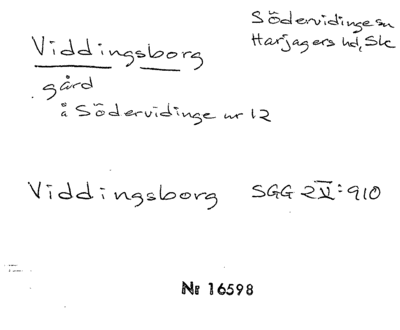 Södervidinge sn
Harjagers hd, Sk
Viddingsborg
gård
å Södervidinge nr 12
Viddingsborg SGG 2 V: 910
Nr 16598